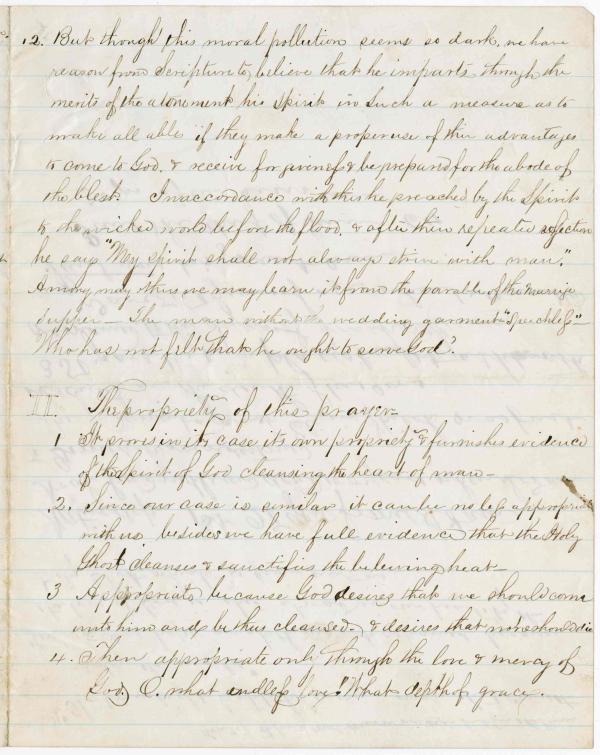 12. But though this moral pollution seems so dark, we have
reason from Scripture to believe that he imparts through the
merits of the atonement his Spirit in such a measure as to
make all able if they make a proper use of their advantages
to come to God, & receive forgivenes & be prepared for the abode of
the blest. In accordance with this he preached by the Spirit
to the wicked world before the flood, & after their repeated rejection
he says "My Spirit shall not always strive with man."
Among may others we may learn it from the parable of the Marriage
Supper — The man without the wedding garment "Speechless" —
Who has not felt that he ought to serve God?
II. The propriety of this prayer —
1 It proves in its case its own propriety & furnishes evidence
of the Spirit of God cleansing the heart of man —
2. Since our case is similar it can be no less appropriate
with us besides we have full evidence that the Holy
Ghost cleanses & sanctifies the believing heart —
3 Appropriate, because God desires that we should come
unto him and be thus cleansed, & desires that none should die
4. Then appropriate only through the love & mercy of
God, O. what endless love! What depth of grace.